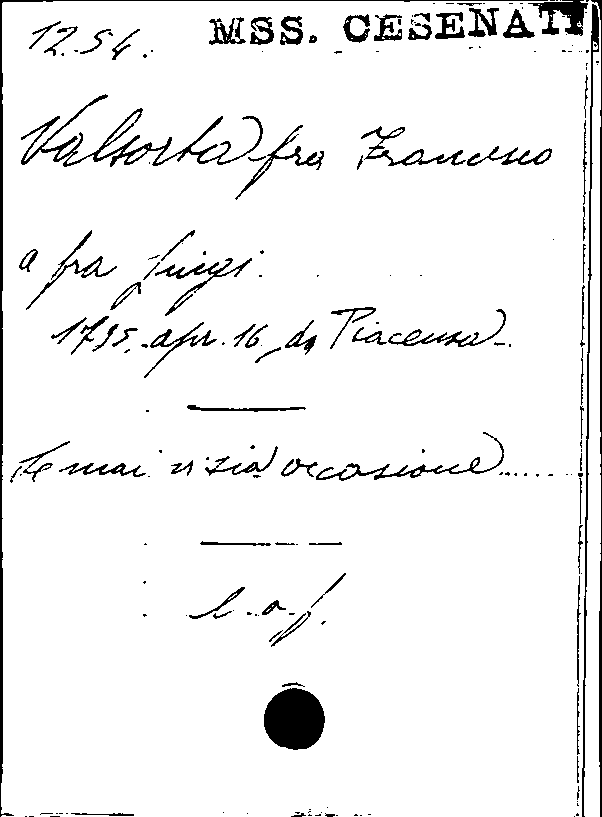 12.54. MSS. CESENATI
Valsorta fra Francesco
a fra Luigi.
1795. apr. 16, da Piacenza.
Se mai vi sia occasione......
l. a. f.